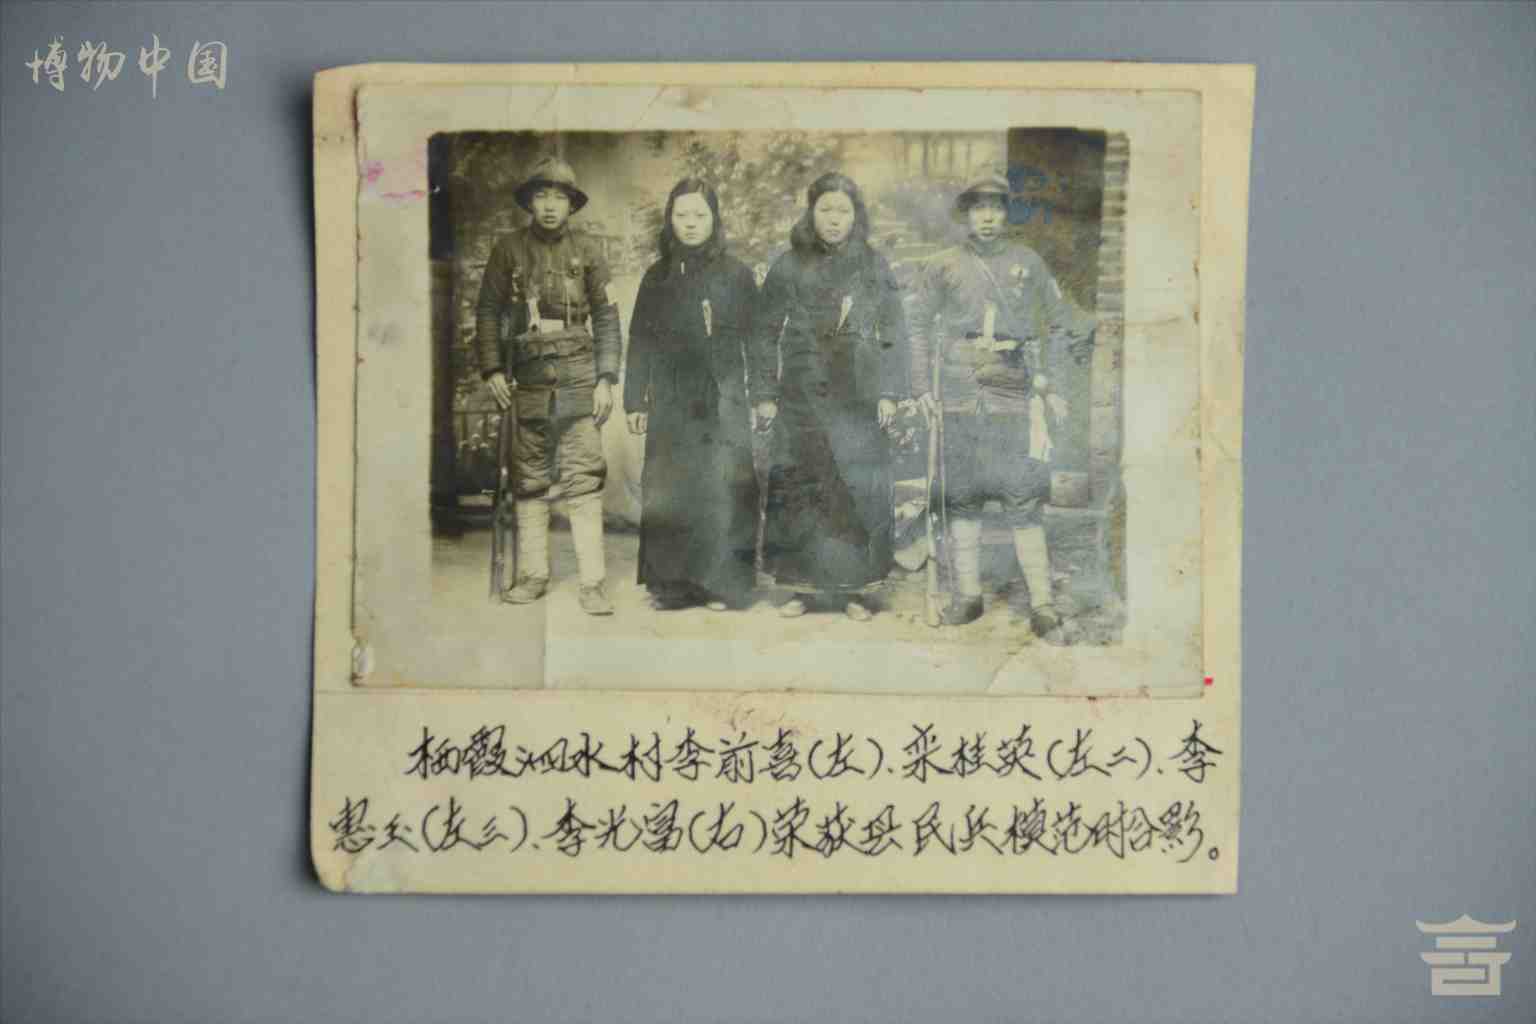 博物中国
栖霞泗水村李前喜(左)、栾桂英(左二)、李
惠玉(左三)、李光富(右)荣获县民兵模范时合影。